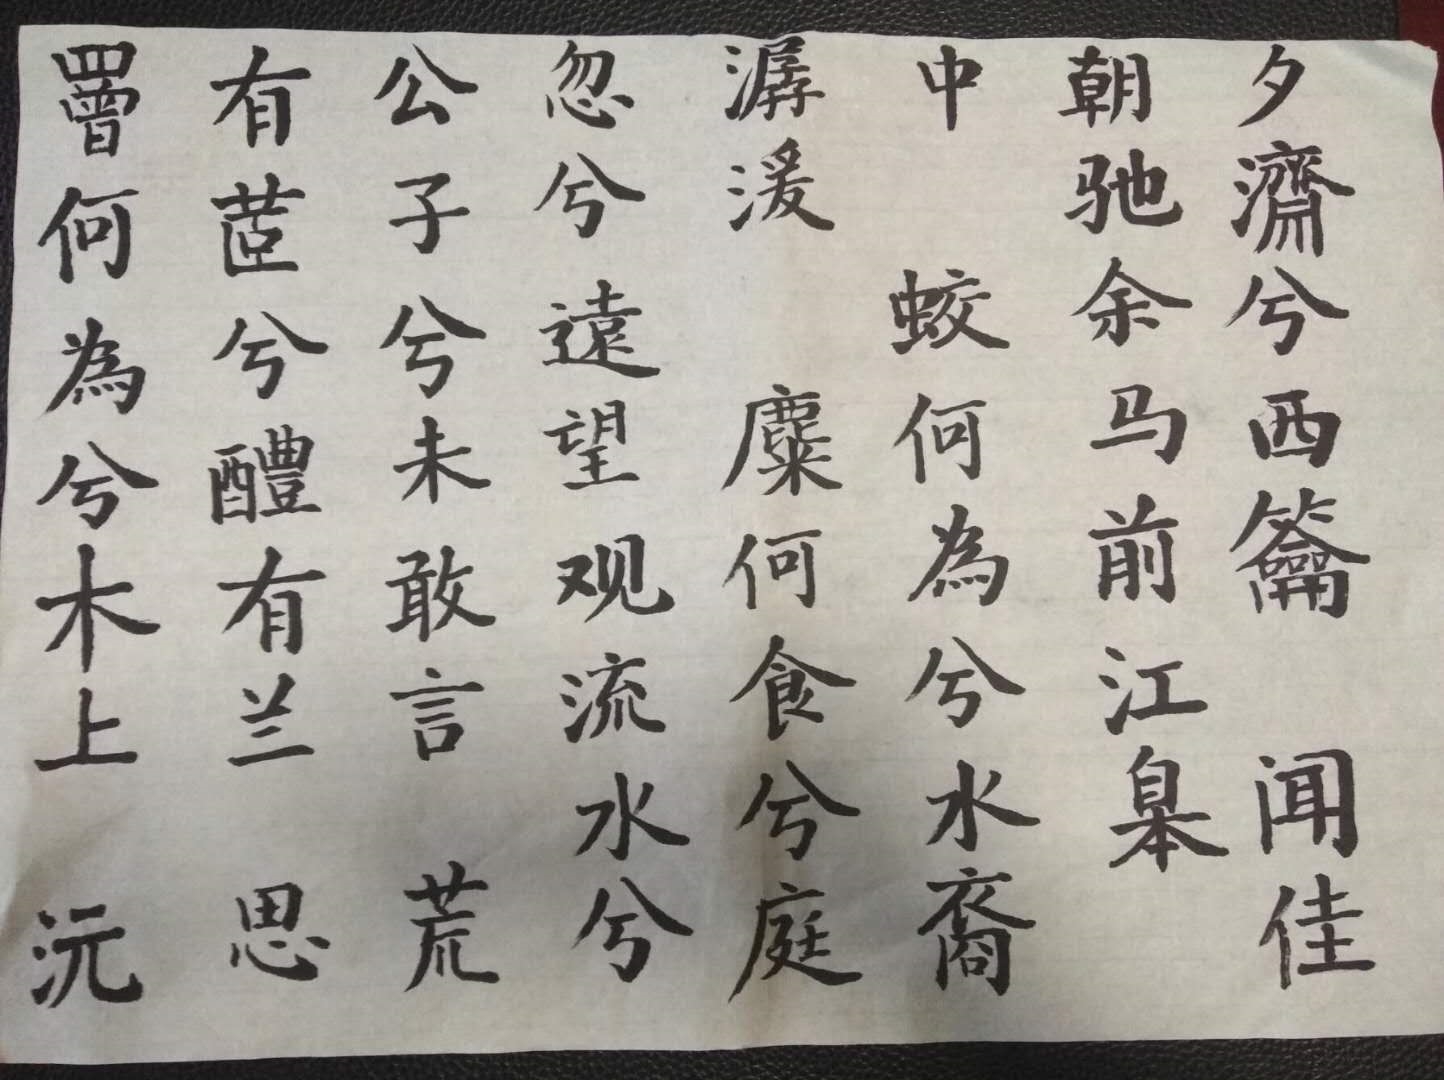 罾何為兮木上 沅
有茝兮醴有兰 思
公子兮未敢言 荒
忽兮遠望观流水兮
潺湲 麋何食兮庭
中 蛟何為兮水裔
朝驰余马前江皋
夕濟兮西籥 闻佳